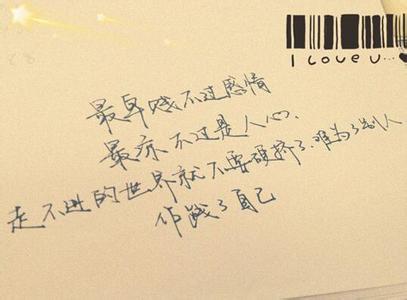 I LOVE U...
最卑贱不过感情
最凉不过是人心、
走不进的世界就不要硬挤了.难为了别人
作践了自己